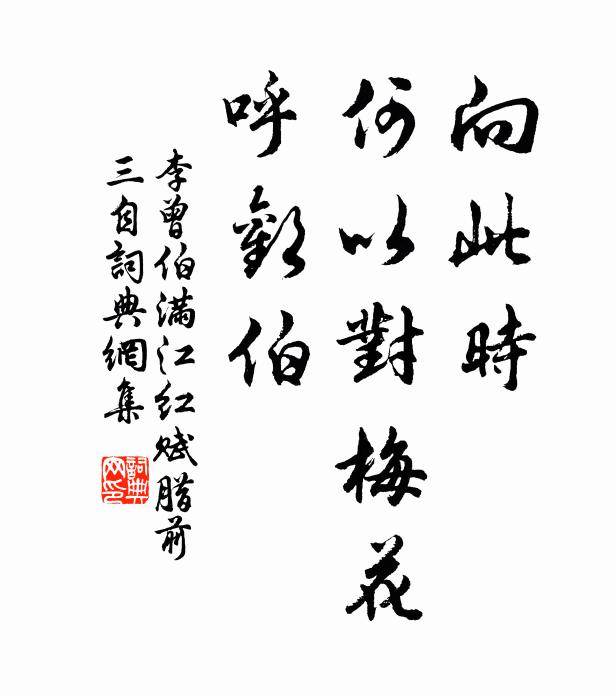 向此時
何以對梅花
呼歡伯
李曾伯满江红赋腊前
三自詞典網集
詞典
网印